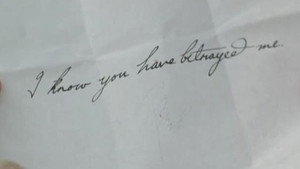 I know you have betrayed me.